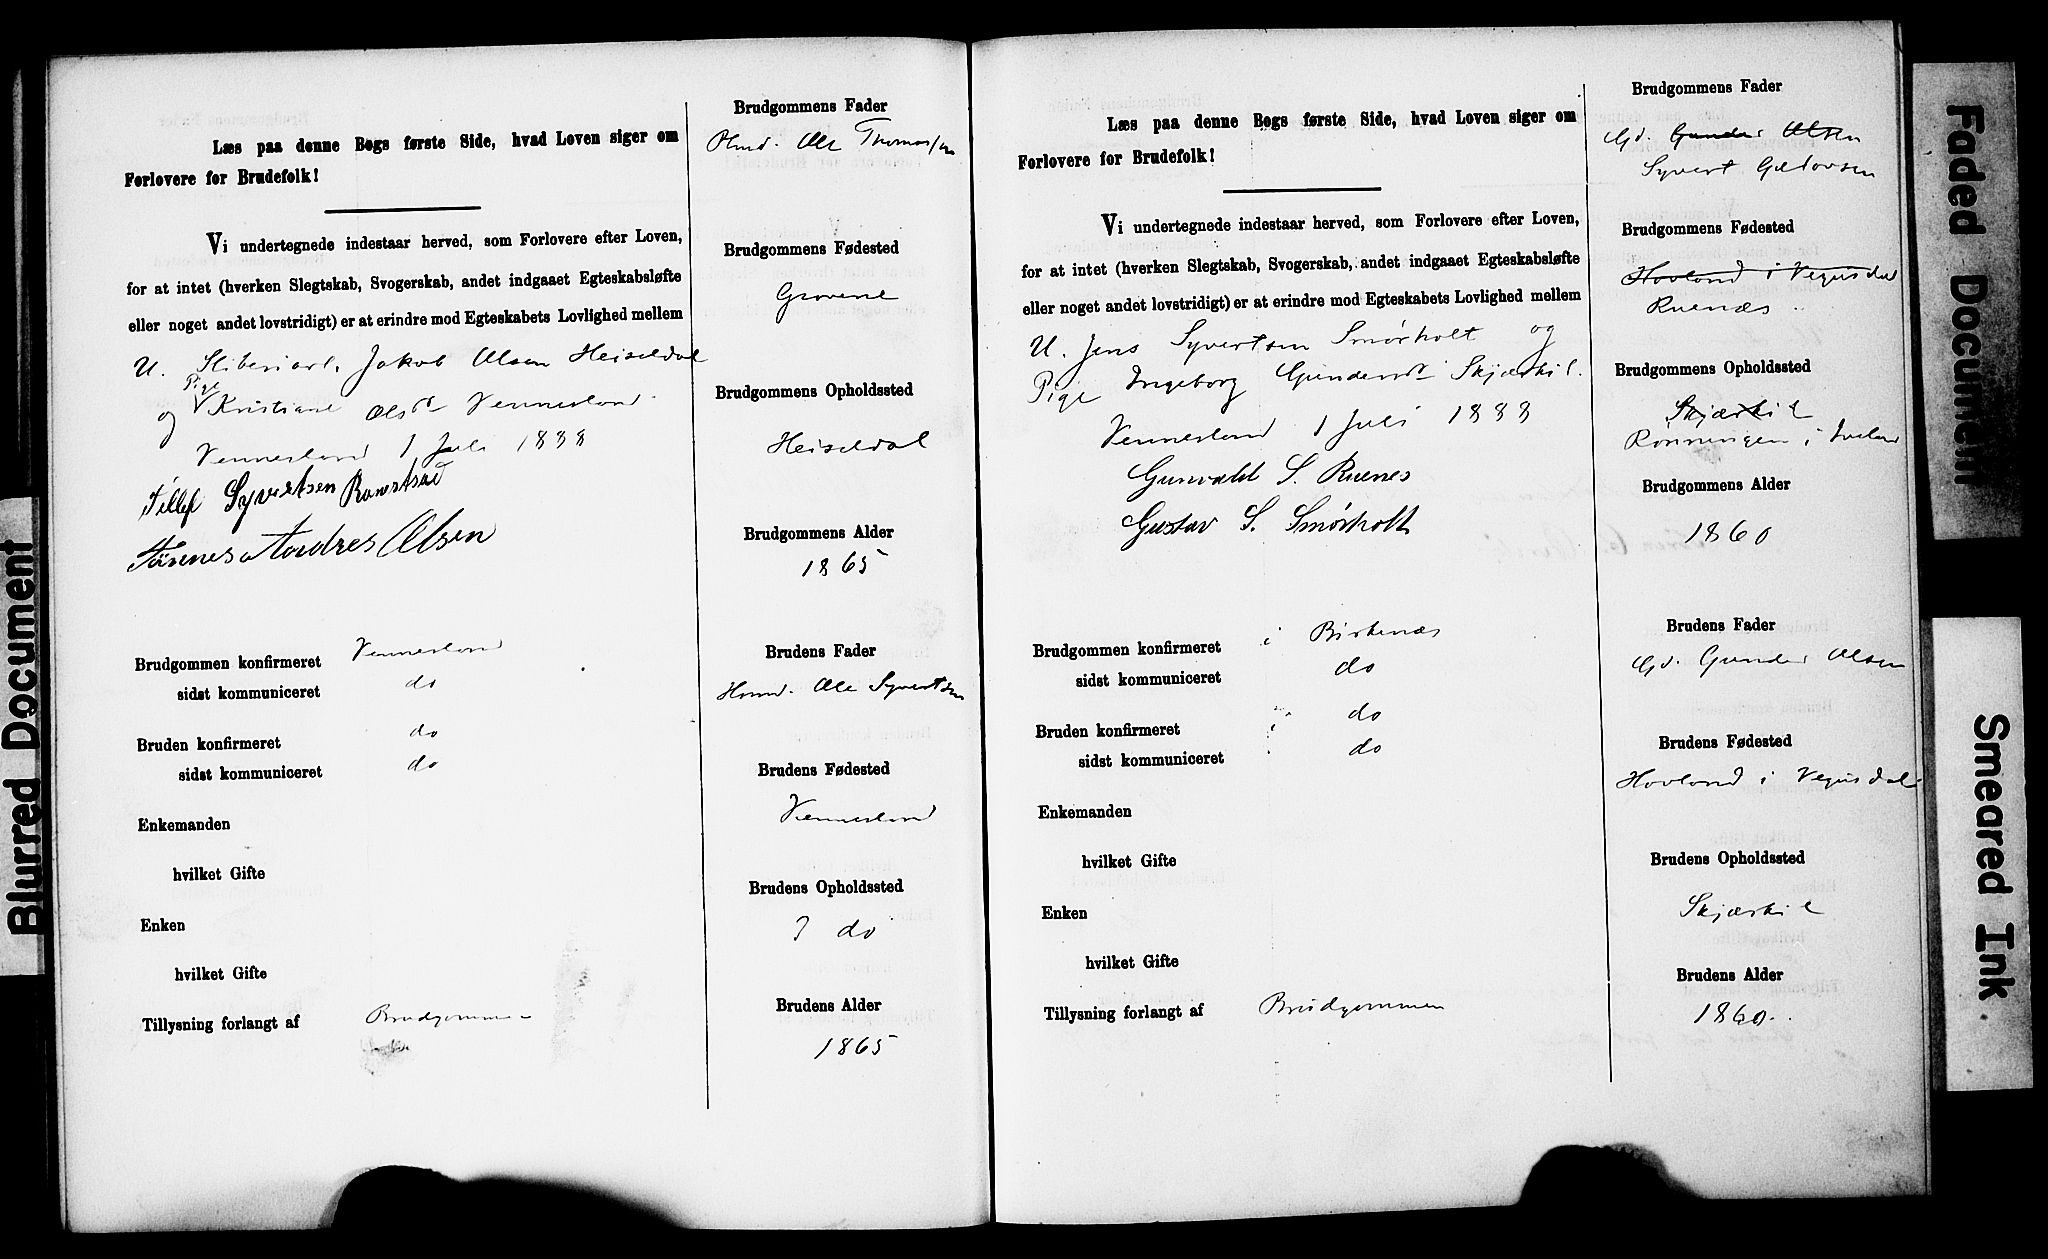 Blurred Document
Læs paa denne Bogs første Side, hvad Loven siger om
Forlovere for Brudefolk!
Vi undertegnede indestaar herved, som Forlovere efter Loven,
for at intet (hverken Slegtskab, Svogerskab, andet indgaaet Egteskabsløfte
eller noget andet lovstridigt) er at erindre mod Egteskabets Lovlighed mellem
U. Jakob Olsen Heiseldal
Pige
og Kristiane Olsdt Vennesland
Vennesland 1 Juli 1888
Tellef Syvertsen
Andres Olsen
Brudgommen konfirmeret Vennesland
sidst kommuniceret do
Bruden konfirmeret do
sidst kommuniceret do
Enkemanden
hvilket Gifte
Enken
hvilket Gifte
Tillysning forlangt af Brudgommen
Brudgommens Fader
Ole Thomassen
Brudgommens Fødested
Grovene
Brudgommens Opholdssted
Heiseldal
Brudgommens Alder
1865
Brudens Fader
Hmd. Ole Syvertsen
Brudens Fødested
Vennesland
Brudens Opholdssted
do
Brudens Alder
1865
Læs paa denne Bogs første Side, hvad Loven siger om
Forlovere for Brudefolk!
Vi undertegnede indestaar herved, som Forlovere efter Loven,
for at intet (hverken Slegtskab, Svogerskab, andet indgaaet Egteskabsløfte
eller noget andet lovstridigt) er at erindre mod Egteskabets Lovlighed mellem
U. Jens Syvertsen Smørholt og
Pige Ingeborg Gundersdt Skjærkil.
Vennesland 1 Juli 1888
Gunvald S. Ruenes
Gustav S. Smørholt
Brudgommen konfirmeret i Birkenæs
sidst kommuniceret do
Bruden konfirmeret i do
sidst kommuniceret do
Enkemanden
hvilket Gifte
Enken
hvilket Gifte
Tillysning forlangt af Brudgommen
Brudgommens Fader
Gd. Gunder Olsen
Syvert
Brudgommens Fødested
Hovland i Vegusdal
Ruenæs
Brudgommens Opholdssted
Skjærkil
Rønningen i Iveland
Brudgommens Alder
1860
Brudens Fader
Gd. Gunder Olsen
Brudens Fødested
Hovland i Vegusdal
Brudens Opholdssted
Skjærkil
Brudens Alder
1860.
Faded Document
Smeared Ink